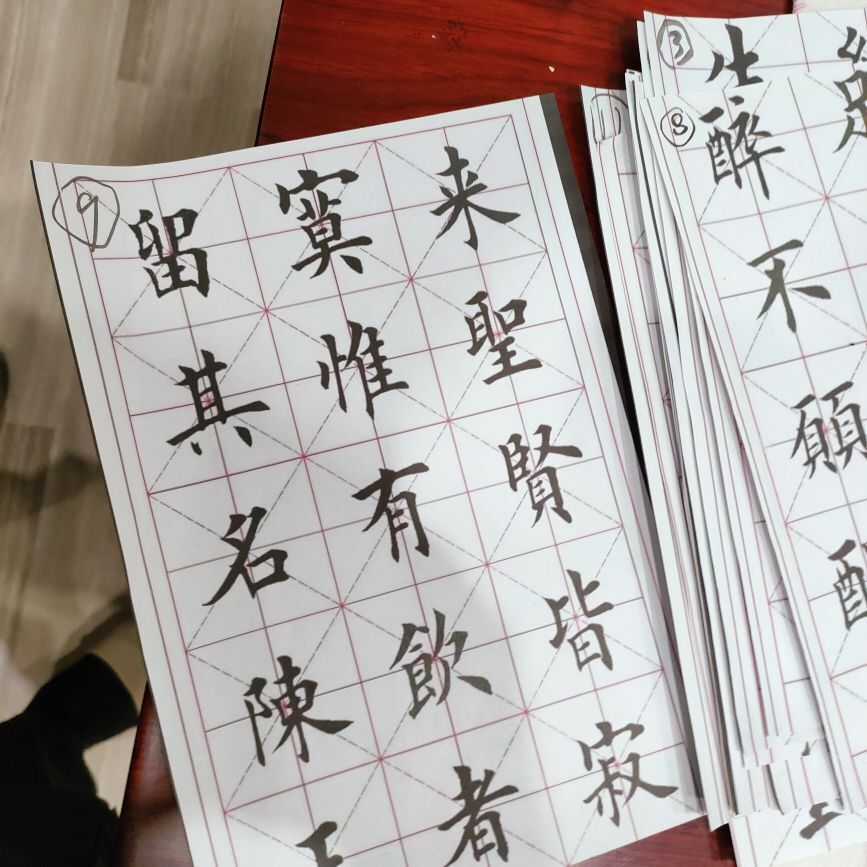 9
来聖賢皆寂
寞惟有飲者
留其名陳
11
3
8
醉不願